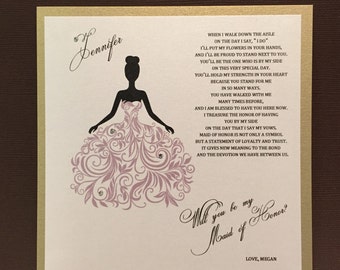 Jennifer
WHEN I WALK DOWN THE AISLE
ON THE DAY I SAY, "I DO"
I'LL PUT MY FLOWERS IN YOUR HANDS,
AND I'LL BE PROUD TO STAND NEXT TO YOU.
YOU'LL BE THE ONE WHO IS BY MY SIDE
ON THIS VERY SPECIAL DAY.
YOU'LL HOLD MY STRENGTH IN YOUR HEART
BECAUSE YOU STAND FOR ME
IN SO MANY WAYS.
YOU HAVE WALKED WITH ME
MANY TIMES BEFORE,
AND I AM BLESSED TO HAVE YOU HERE NOW.
I TREASURE THE HONOR OF HAVING
YOU BY MY SIDE
ON THE DAY THAT I SAY MY VOWS,
MAID OF HONOR IS NOT ONLY A SYMBOL
BUT A STATEMENT OF LOYALTY AND TRUST.
IT GIVES NEW MEANING TO THE BOND
AND THE DEVOTION WE HAVE BETWEEN US.
Will you be my
Maid of Honor?
LOVE, MEGAN